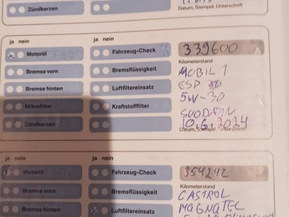 ja nein
Zündkerzen
Datum, Stempel, Unterschrift
ja nein ja nein
Motoröl Fahrzeug-Check 339600
Kilometerstand
Bremse vorn Bremsflüssigkeit MOBIL 1
Bremse hinten Luftfiltereinsatz ESP
5W-30
Mikrofilter Kraftstofffilter
Zündkerzen 10.6.2024
ja nein ja nein
Motoröl Fahrzeug-Check
Kilometerstand
Bremse vorn Bremsflüssigkeit CASTROL
Bremse hinten Luftfiltereinsatz MAGNATEC